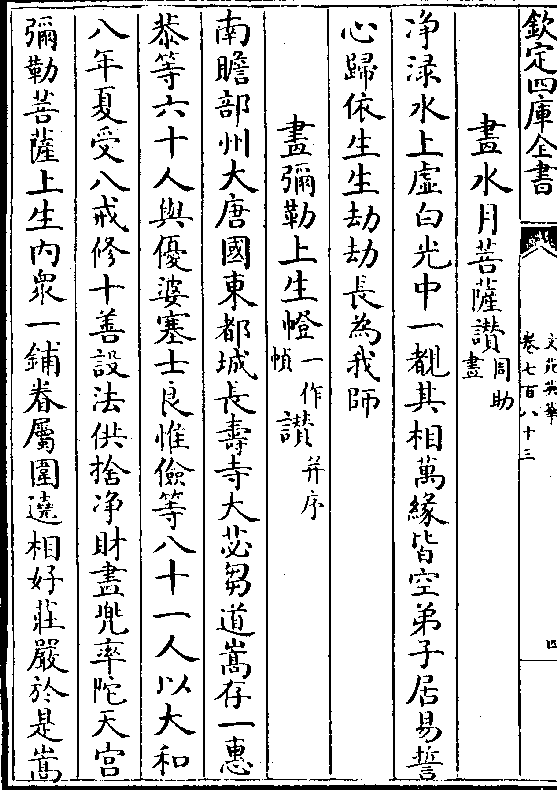 欽定四庫全書
文苑英華
卷七百八十三
四
畫水月菩薩讃周助畫
凈渌水上虛白光中一覩其相萬緣皆空弟子居易誓
心歸依生生劫劫長為我師
畫彌勒上生㡧一作幀讃并序
南贍部州大唐國東都城長壽寺大苾芻道嵩存一惠
㳟等六十人與優婆塞士良惟儉等八十一人以大和
八年夏受八戒修十善設法供捨凈財畫兜率陀天宫
彌勒菩薩上生内衆一鋪眷屬圍遶相好莊嚴於是嵩